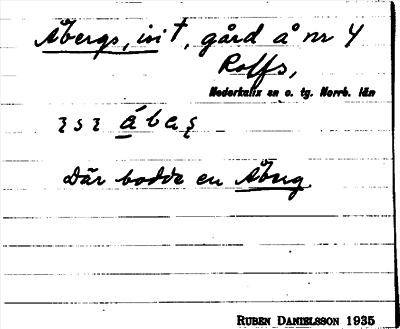 Åbergs, isit, gård å nr 4
Rolfs,
Nederkalix sn o. tg. Norrb. län
Där bodde en Åberg.
RUBEN DANIELSSON 1935